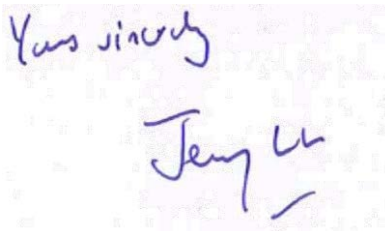 Yours sincerely
Jeremy